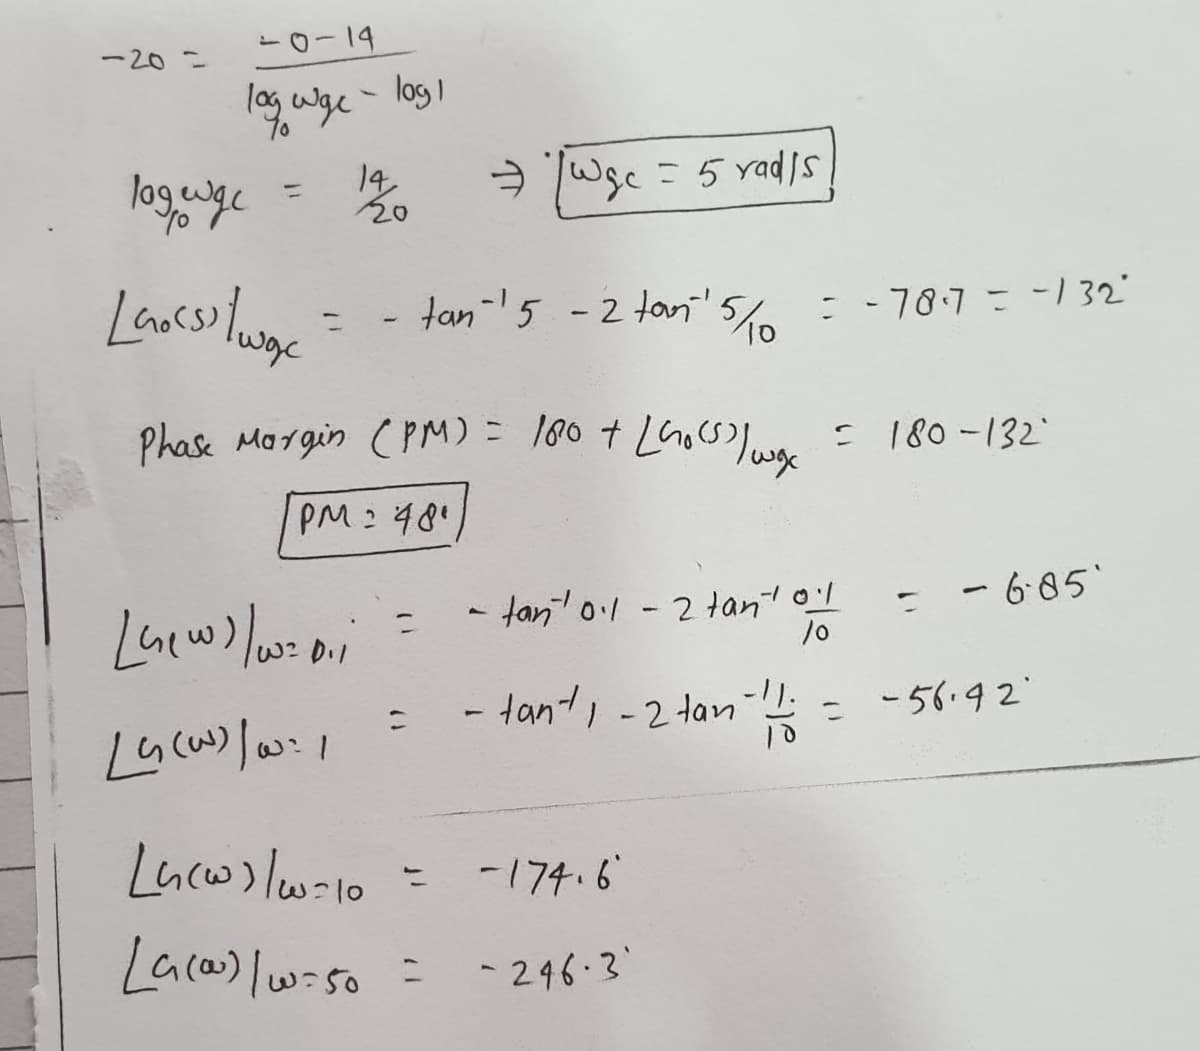 -20 = (-0-14)/(log₁₀ wgc - log 1)
log₁₀ wgc = 14/20 ⇒ wgc = 5 rad/s
∠G₀(s)|wgc = - tan⁻¹ 5 - 2 tan⁻¹ 5/10 = -78.7 = -132°
Phase Margin (PM) = 180 + ∠G₀(s)|wgc = 180 - 132°
PM = 48°
∠G(w)|w=0.1 = - tan⁻¹ 0.1 - 2 tan⁻¹ 0.1/10 = - 6.85°
∠G(w)|w=1 = - tan⁻¹ 1 - 2 tan⁻¹ 1/10 = -56.42°
∠G(w)|w=10 = -174.6°
∠G(w)|w=50 = -246.3°